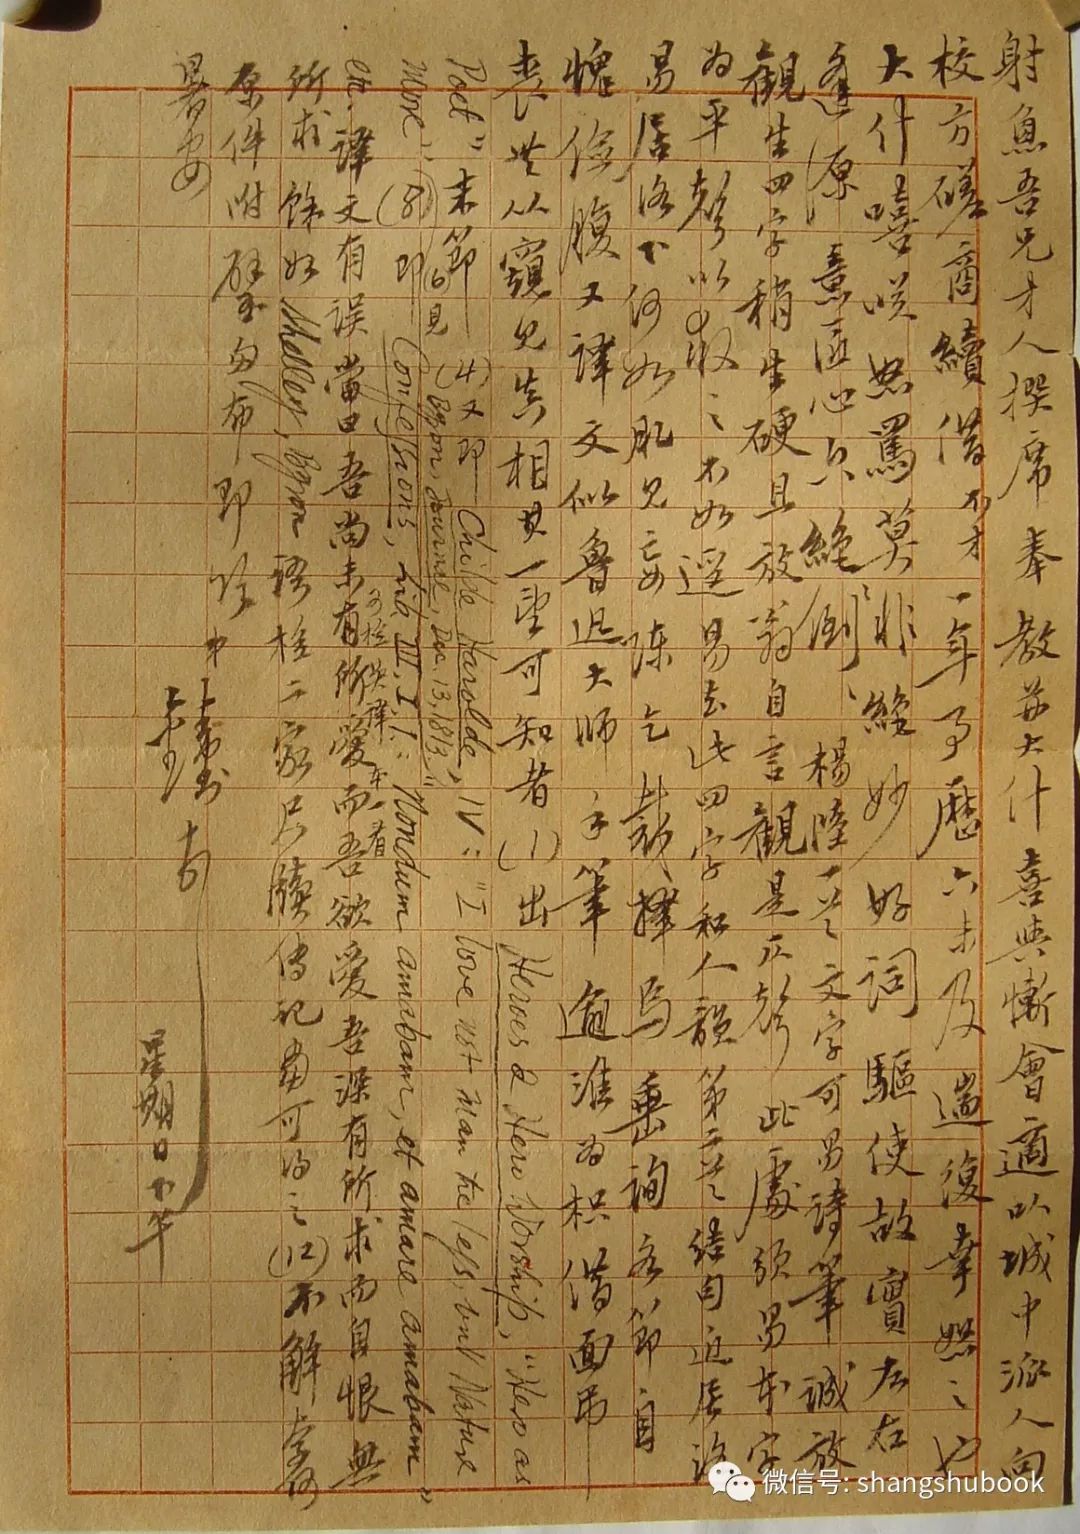 射魚吾兄才人撰席奉教並大什喜與慚會適以城中派人向
校方磋商續借不才一年事歷六未及遄復幸恕之也
大什嘻笑怒罵莫非絕妙好詞驅使故實左右
逢源熹匠心只絕倒楊陸一首文字可易詩筆誠放
觀生四字稍生硬且放翁自言觀是正聲此處頗易本字
為平聲以我之不如逕易去此四字和人韻第二首結句近居洛
易居洛下何如肌見妄陳乞裁擇焉垂詢各節自
愧儉腹又譯文似魯迅大師手筆逾淮為枳借面弔
喪無從窺見真相其一望可知者(1)出 Heroes & Hero Worship, "Hero as
Poet" 末節 (4)又即 Childe Harolde, IV: "I love not Man the less, but Nature
More" (6)見 (Byron, Journal, Dec. 13, 1813)
(8)即 Confessions, Lib III, I, 1: "Nondum amabam, et amare amabam"
etc. 譯文有誤當曰吾尚未有所愛而吾欲愛吾深有所求而自恨無
所求 餘如 Shelley, Byron 語檢二家尺牘傳記當可得之(12)不解
原件附璧匆布即頌
暑安
弟
鍾書
星期日下午
微信号: shangshubook